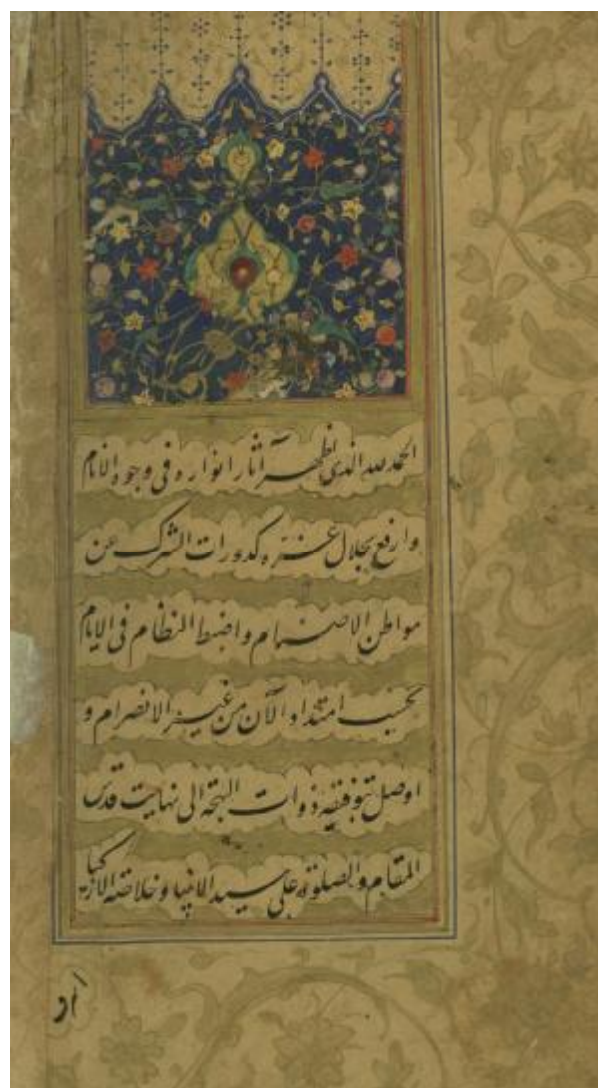 الحمد لله الذی اظهر آثار انواره فی وجوه الانام
وارفع بجلال عزته کدورات الشرک عن
مواطن الاصنام واضبط النظام فی الایام
بحسب امتداد الآن من غیر الانصرام و
اوصل بتوفیقه ذوات البتجة الی نهایت قدس
المقام والصلوة علی سید الانبیا وخلاصة الازکیا